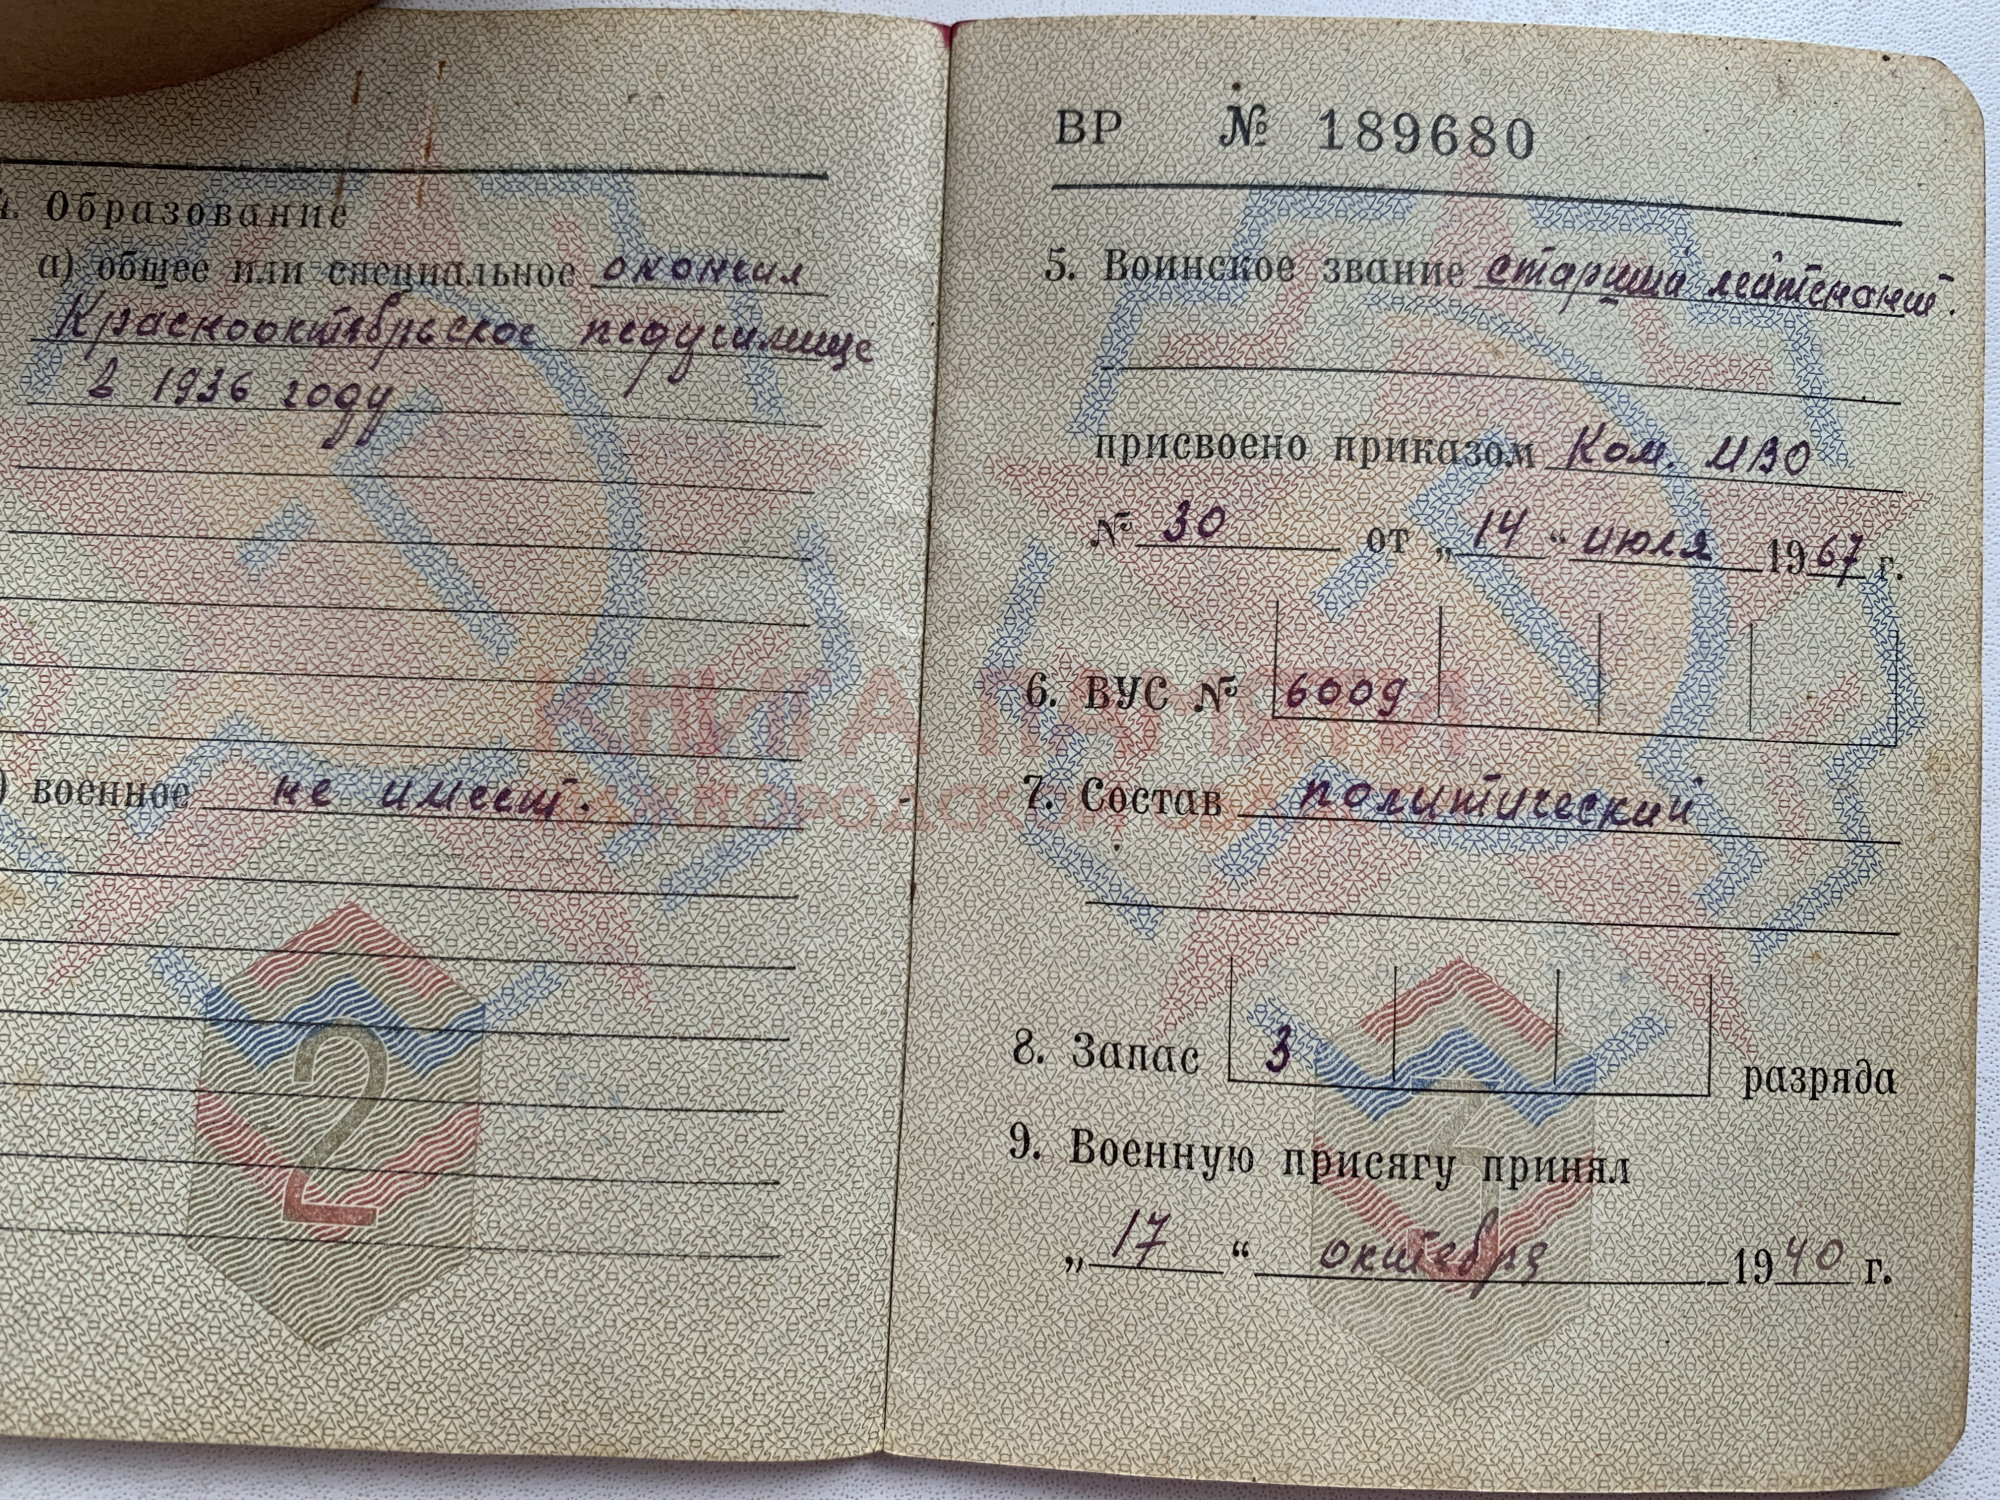 4. Образование
а) общее или специальное окончил
Краснооктябрьское педучилище
в 1936 году
) военное не имеет.
2
ВР № 189680
5. Воинское звание старший лейтенант.
присвоено приказом Ком. МВО
№ 30 от „14“ июля 1967 г.
6. ВУС № 6009
КНИГА ПАМЯТИ
7. Состав политический
8. Запас 3 разряда
9. Военную присягу принял
„17“ октября 1940 г.